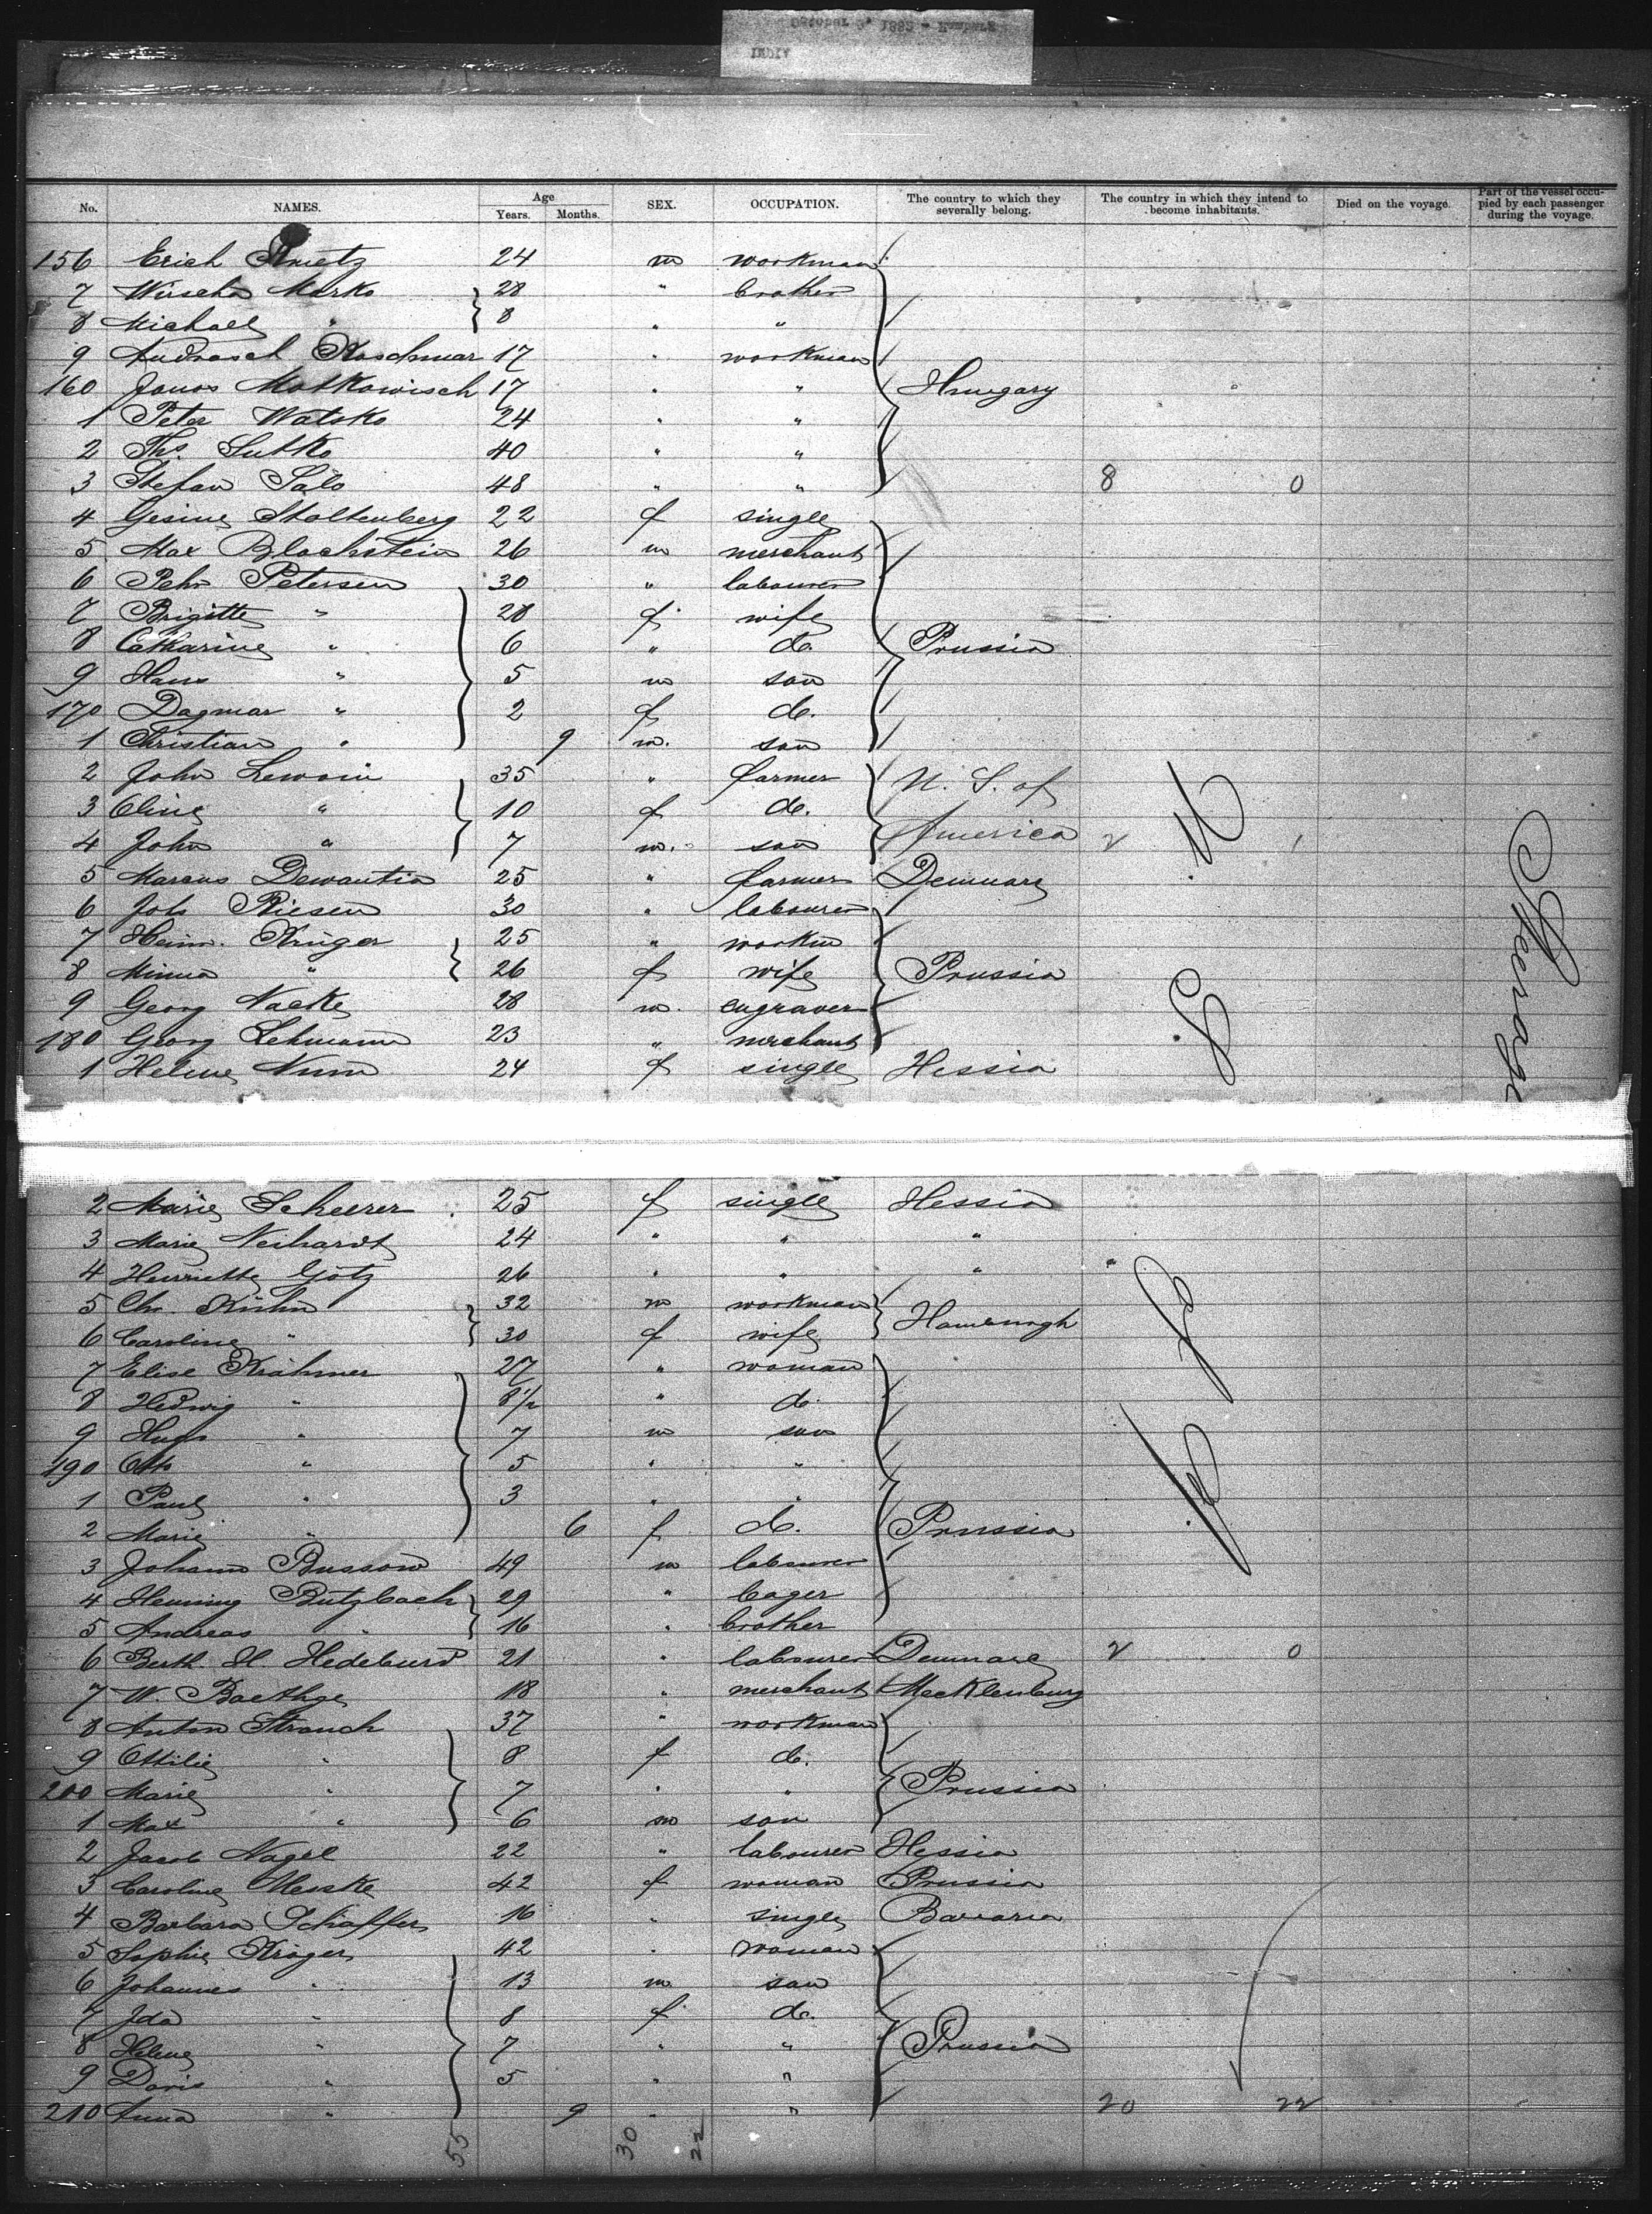 October 9, 1882 - Hamburg
INDIA
No. NAMES. Age Years. Months. SEX. OCCUPATION. The country to which they severally belong. The country in which they intend to become inhabitants. Died on the voyage. Part of the vessel occupied by each passenger during the voyage.
156 Erich 24 m workman
7 Marko 28 " brother
8 Michael " 8 " "
9 Andrasch Koschmar 17 " workman
160 Janos Matkowisch 17 " " Hungary
1 Peter Watsko 24 " "
2 Ths. Sutko 40 " "
3 Stefan Salo 48 " " 8 0
4 Gesine Stoltenberg 22 f single
5 Max Blochstein 26 m merchant
6 Pehr Petersen 30 " labourer
7 Brigitte " 28 f wife
8 Catharine " 6 " d. Prussia
9 Hans " 5 m son
170 Dagmar " 2 f d.
1 Christian " 9 m. son
2 John Lewoin 35 " farmer U. S. of
3 Eline " 10 f d.
4 John " 7 m. son America 2 1
5 Marcus Dewantin 25 " farmer Denmark
6 Joh Riesen 30 " labourer
7 Heinr. Krüger 25 " workm
8 Minna " 26 f wife Prussia
9 Georg Nacke 28 m. engraver
180 Georg Lehmann 23 " merchant
1 Helene Numm 24 f single Hessia
U S of A
Steerage
2 Marie Scheerer 25 f single Hessia
3 Marie Neihardt 24 " " "
4 Henriette Götz 26 " " " "
5 Chr. Kühn 32 m workman
6 Caroline " 30 f wife Hamburgh
7 Elise Krähmer 27 " woman
8 Hedwig " 8 1/2 " d.
9 Hugo " 7 m son
190 Otto " 5 " "
1 Paul " 3 " "
2 Marie " 6 f d. Prussia
3 Johann Bussow 49 m labourer
4 Henning Butzbach 29 " bager
5 Andreas " 16 " brother
6 Berth. H. Hedelund 21 " labourer Denmark 2 0
7 W. Baethge 18 " merchant Mecklenburg
8 Anton Strauch 37 " workman
9 Ottilie " 8 f d.
200 Marie " 7 " " Prussia
1 Max " 6 m son
2 Jacob Nagel 22 " labourer Hessia
3 Caroline Meske 42 f woman Prussia
4 Barbara Schäffer 16 " single Bavaria
5 Sophie Kröger 42 " woman
6 Johannes " 13 m son
7 Ida " 8 f d.
8 Helene " 7 " " Prussia
9 Doris " 5 " "
210 Anna " 9 " " 20 22
55 30 22